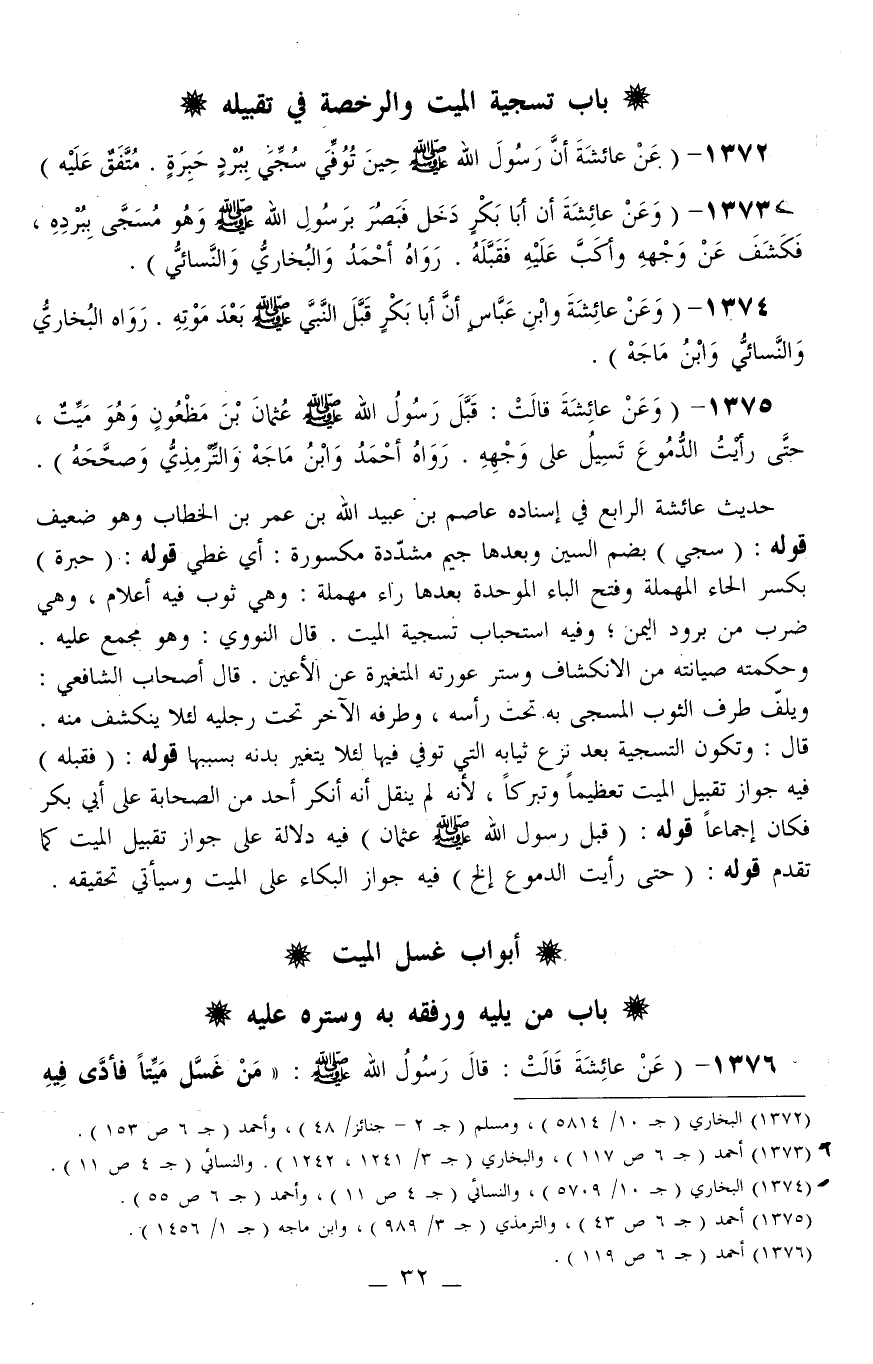 باب تسجية الميت والرخصة في تقبيله
١٣٧٢- ( عَنْ عائشَةَ أنَّ رَسُولَ الله ﷺ حِينَ تُوُفِّيَ سُجِّيَ بِبُرْدٍ حَبِرَةٍ . مُتَّفَقٌ عَلَيْه )
١٣٧٣- ( وَعَنْ عائِشَةَ أن أبَا بَكْرٍ دَخَل فَبَصُرَ بِرَسُول الله ﷺ وَهُو مُسَجًّى بِبُرْدِهِ ،
فَكَشَفَ عَنْ وَجْههِ وأكَبَّ عَلَيْهِ فَقَبَّلَهُ . رَوَاهُ أحْمَدُ وَالبُخاريُّ وَالنَّسائيُّ ) .
١٣٧٤- ( وَعَنْ عائِشَةَ وابْنِ عَبَّاسٍ أنَّ أبا بَكْرٍ قَبَّلَ النَّبيَّ ﷺ بَعْدَ مَوْتِهِ . رَوَاه البُخاريُّ
وَالنَّسائيُّ وَابْنُ مَاجَهْ ) .
١٣٧٥- ( وَعَنْ عائِشَةَ قالَتْ : قَبَّلَ رَسُولُ الله ﷺ عُثمانَ بْنَ مَظْعُونٍ وَهُوَ مَيِّتٌ ،
حتَّى رأيْتُ الدُّمُوعَ تَسِيلُ على وَجْهِهِ . رَوَاهُ أحْمَدُ وَابْنُ مَاجَهْ وَالتِّرْمِذِيُّ وَصحَّحَهُ ) .
حديث عائشة الرابع في إسناده عاصم بن عبيد الله بن عمر بن الخطاب وهو ضعيف
قوله : ( سجي ) بضم السين وبعدها جيم مشدّدة مكسورة : أي غطي قوله : ( حبرة )
بكسر الحاء المهملة وفتح الباء الموحدة بعدها راء مهملة : وهي ثوب فيه أعلام ، وهي
ضرب من برود اليمن ؛ وفيه استحباب تسجية الميت . قال النووي : وهو مجمع عليه .
وحكمته صيانته من الانكشاف وستر عورته المتغيرة عن الأعين . قال أصحاب الشافعي :
ويلفّ طرف الثوب المسجى به تحت رأسه ، وطرفه الآخر تحت رجليه لئلا ينكشف منه .
قال : وتكون التسجية بعد نزع ثيابه التي توفي فيها لئلا يتغير بدنه بسببها قوله : ( فقبله )
فيه جواز تقبيل الميت تعظيماً وتبركاً ، لأنه لم ينقل أنه أنكر أحد من الصحابة على أبي بكر
فكان إجماعاً قوله : ( قبل رسول الله ﷺ عثمان ) فيه دلالة على جواز تقبيل الميت كما
تقدم قوله : ( حتى رأيت الدموع إلخ ) فيه جواز البكاء على الميت وسيأتي تحقيقه .
أبواب غسل الميت
باب من يليه ورفقه به وستره عليه
١٣٧٦- ( عَنْ عائِشَةَ قَالَتْ : قالَ رَسُولُ الله ﷺ : « مَنْ غَسَّل مَيِّتاً فأدَّى فِيهِ
(١٣٧٢) البخاري ( جـ ١٠/ ٥٨١٤ ) ، ومسلم ( جـ ٢ - جنائز/ ٤٨ ) ، وأحمد ( جـ ٦ ص ١٥٣ ) .
(١٣٧٣) أحمد ( جـ ٦ ص ١١٧ ) ، والبخاري ( جـ ٣/ ١٢٤١ ، ١٢٤٢ ) . والنسائي ( جـ ٤ ص ١١ ) .
(١٣٧٤) البخاري ( جـ ١٠/ ٥٧٠٩ ) ، والنسائي ( جـ ٤ ص ١١ ) ، وأحمد ( جـ ٦ ص ٥٥ ) .
(١٣٧٥) أحمد ( جـ ٦ ص ٤٣ ) ، والترمذي ( جـ ٣/ ٩٨٩ ) ، وابن ماجه ( جـ ١/ ١٤٥٦ ) .
(١٣٧٦) أحمد ( جـ ٦ ص ١١٩ ) .
_ ٣٢ _